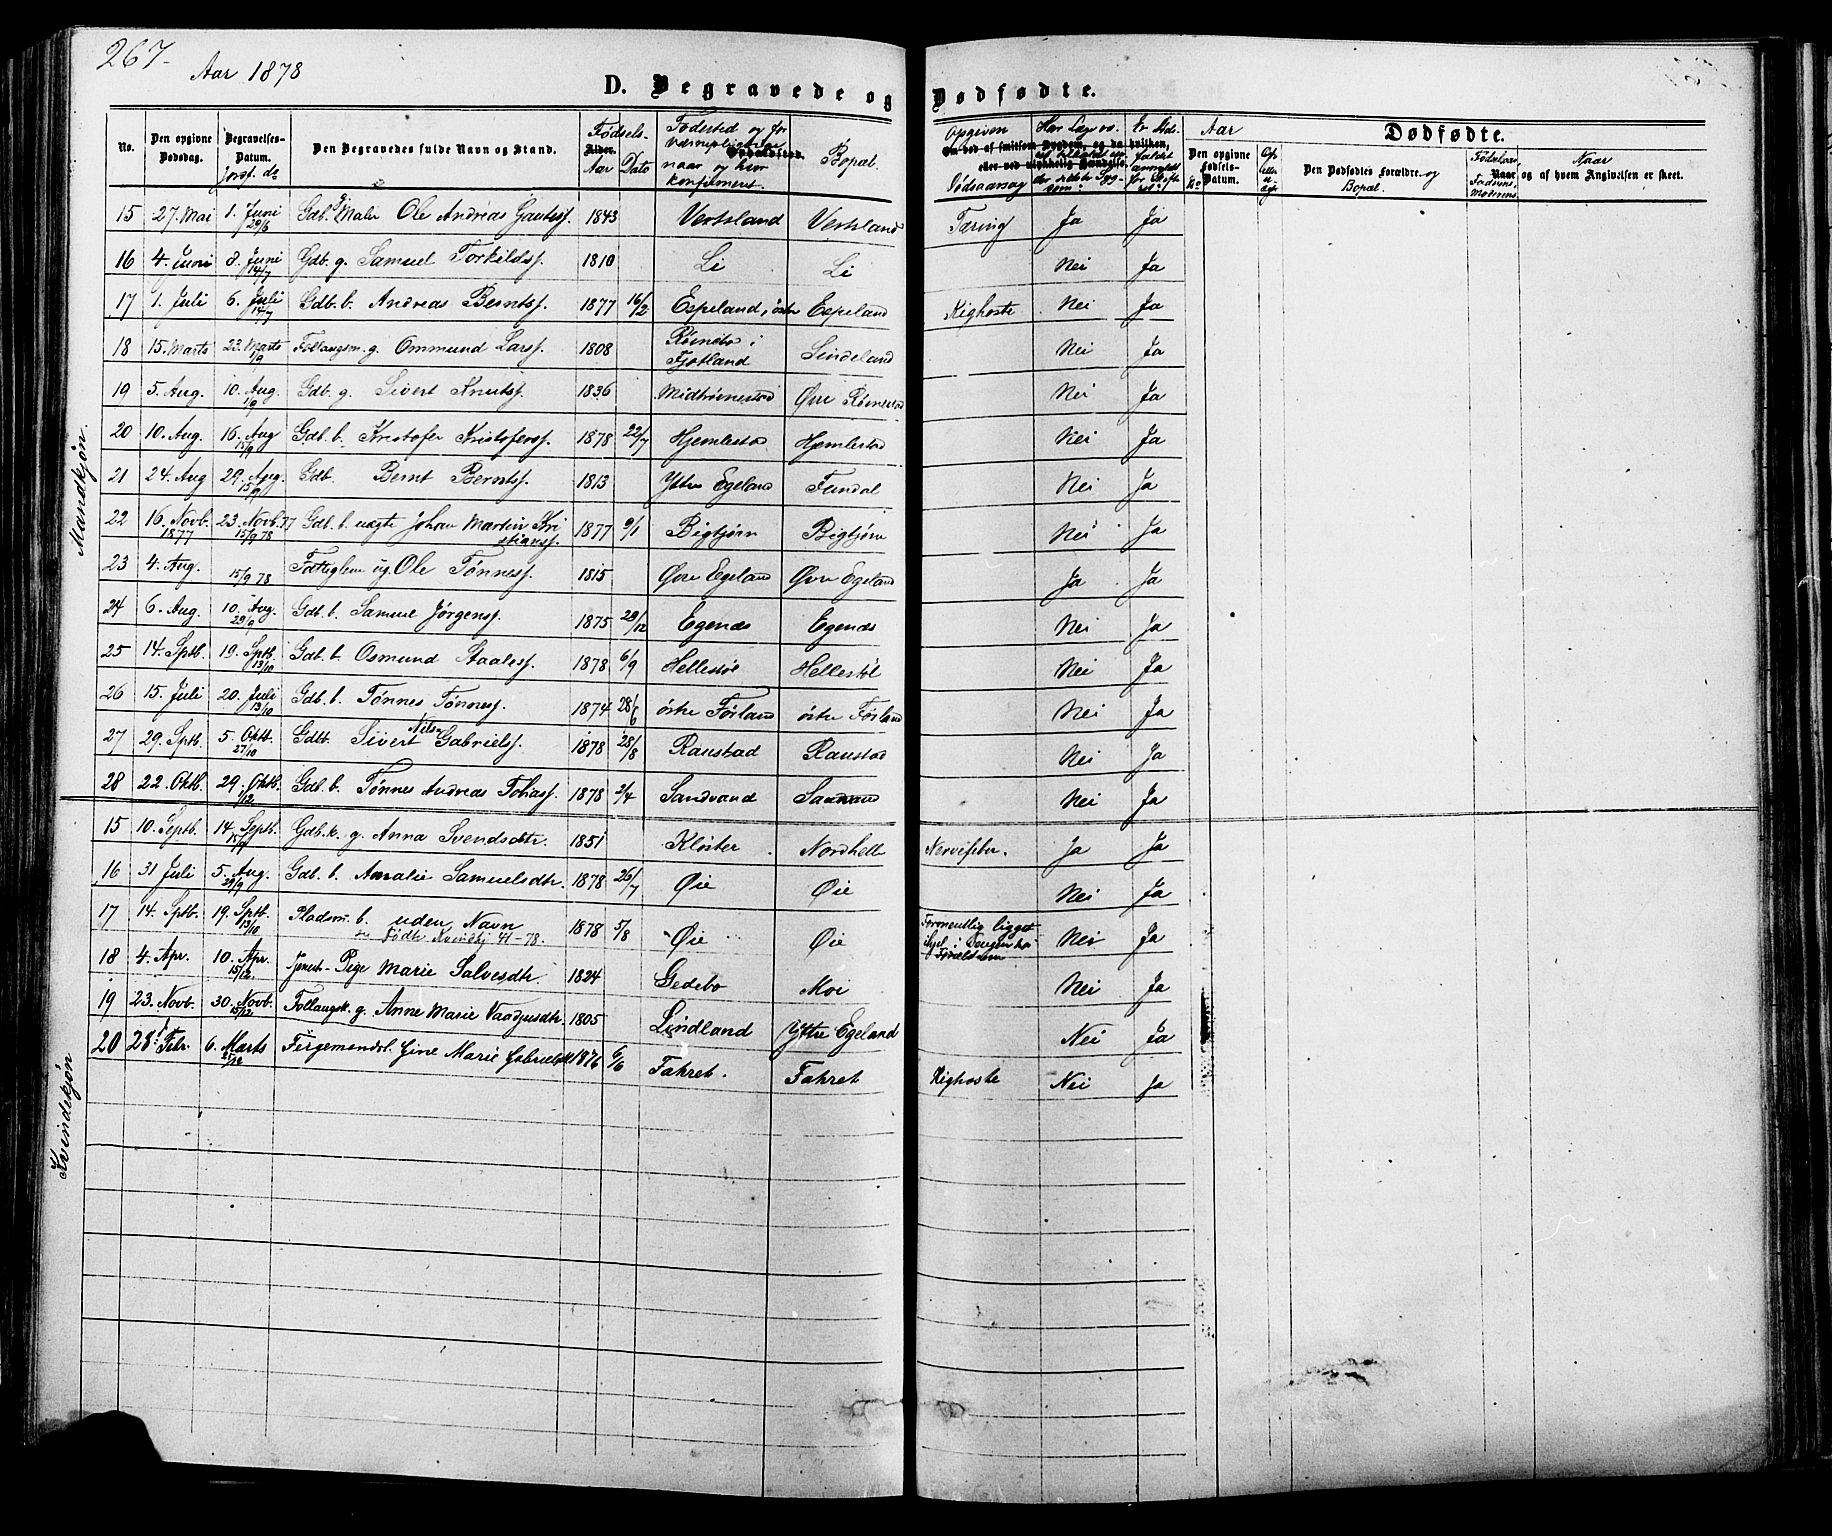 267-
Aar 1878
D. Begravede og Dødfødte.
No. Den opgivne Dødsdag. Begravelses-Datum. Jordf. do Den Begravedes fulde Navn og Stand. Fødsels- Alder. Aar Dato Fødested og for naar og hvor konfirmeret. Opholdssted. Bopæl.
Opgiven Dødsaarsag Om død af smitsom Sygdom, og da hvilken, eller ved ulykkelig Hændelse. Har Læge Er Døds-
Aar Dødfødte.
No Den opgivne Fødsels-Datum. Den Dødfødtes Forældre og Bopæl. Fødselsaar, Faderens, Moderens Naar og af hvem Angivelsen er skeet.
Mandkjøn.
15 27. Mai 1. Juni 29/6 Gdb. Maler Ole Andreas Gautess. 1843 Vertsland Vertsland Tæring Ja Ja
16 4. Juni 8. Juni 14/7 Gdb. g. Samuel Torkildss. 1810 Li Li Nei Ja
17 1. Juli 6. Juli 14/7 Gdb. b. Andreas Berntss. 1877 16/2 Espeland, østre Espeland Kighoste Nei Ja
18 15. Marts 23. Marts 1/9 Follaugsm. g. Ommund Larss. 1808 Røinebø i Fjotland Sindeland Nei Ja
19 5. Aug. 10. Aug. 1/9 Gdb. g. Sivert Knutss. 1836 Midtrømestad Øvre Rømestad Nei Ja
20 10. Aug. 16. Aug 15/9 Gdb. b. Kristofer Kristoferss. 1878 22/7 Hjemlestad Hjemlestad Nei Ja
21 24. Aug 29. Aug. 15/9 Gdb. Bernt Berntss. 1813 Ytre Egeland Fundal Nei Ja
22 16. Novb. 1877 23. Novb. 77 15/9 78 Gdb. b. uægte Johan Martin Kristianss. 1877 9/1 Bigtjørn Bigtjørn Nei Ja
23 4. Aug. 15/9 78 Fattiglem ug. Ole Tønness. 1815 Øvre Egeland Øvre Egeland Ja Ja
24 6. Aug. 10. Aug. 29/9 Gdb. b. Samuel Jørgenss. 1875 29/12 Egenæs Egenæs Nei Ja
25 14. Sptb. 19. Sptb. 13/10 Gdb. b. Osmund Staaless. 1878 6/9 Hellestøl Hellestøl Nei Ja
26 15. Juli 20. Juli 13/10 Gdb. b. Tønnes Tønness. 1874 28/6 østre Førland østre Førland Nei Ja
27 29. Sptb. 5. Oktb. 27/10 Gdb. Sivert Nils Gabrielss. 1878 28/8 Raustad Raustad Nei Ja
28 22. Oktb. 29. Oktb. 1/12 Gdb. b. Tønnes Andreas Tobiass. 1878 2/4 Sandvand Sandvand Nei Ja
Kvindekjøn
15 10. Septb. 14. Septb. 15/9 Gdb.k. g. Anna Svendsdtr. 1851 Kloster Nordhelle Nervefeber. Ja Ja
16 31 Juli 5. Aug. 29/9 Gdb. b. Amalie Samuelsdtr. 1878 26/7 Øie Øie Nei Ja
17 14. Sptb. 19. Sptb. 13/10 Pladsm. b. uden Navn Født Kvindkj 41-78. 1878 5/8 Øie Øie Formentlig ligget ihjel i Sengen hos Forældrene Nei Ja
18 4. Apr. 10. Apr. 15/12 Pige Marie Salvesdtr 1824 Gedebø Moi Nei Ja
19 23. Novb. 30. Novb. 15/12 Follaugsk. g. Anne Marie 1805 Lindland Ytre Egeland Nei Ja
20 28. Febr. 6. Marts Færgemandsb. Gine Marie Gabrielsdt 1876 6/6 Fahret. Fahret Kighoste Nei Ja